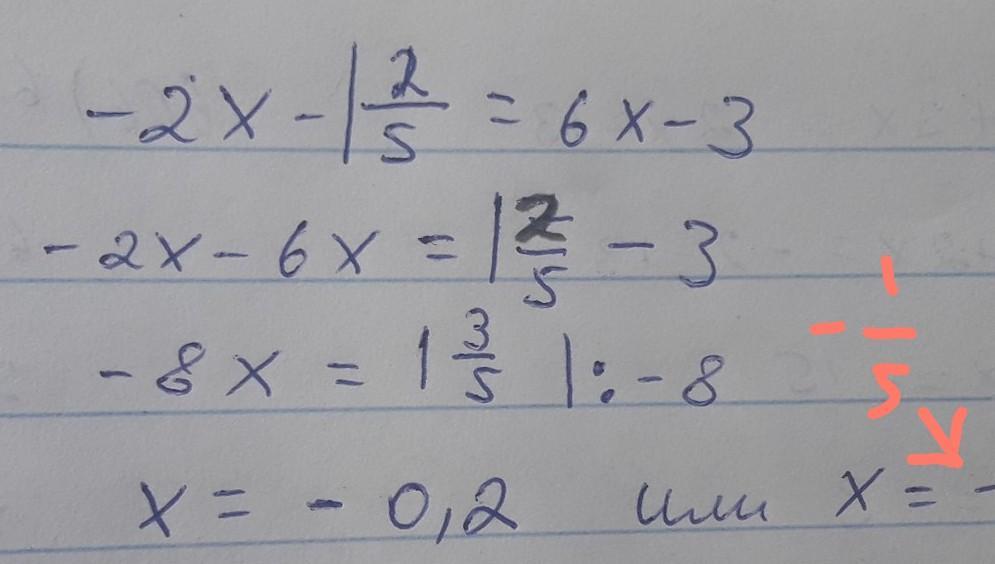 -2x - 1 2/5 = 6x - 3
-2x - 6x = 1 2/5 - 3
-8x = 1 3/5 |: -8
x = - 0,2 или x = -
- 1/5